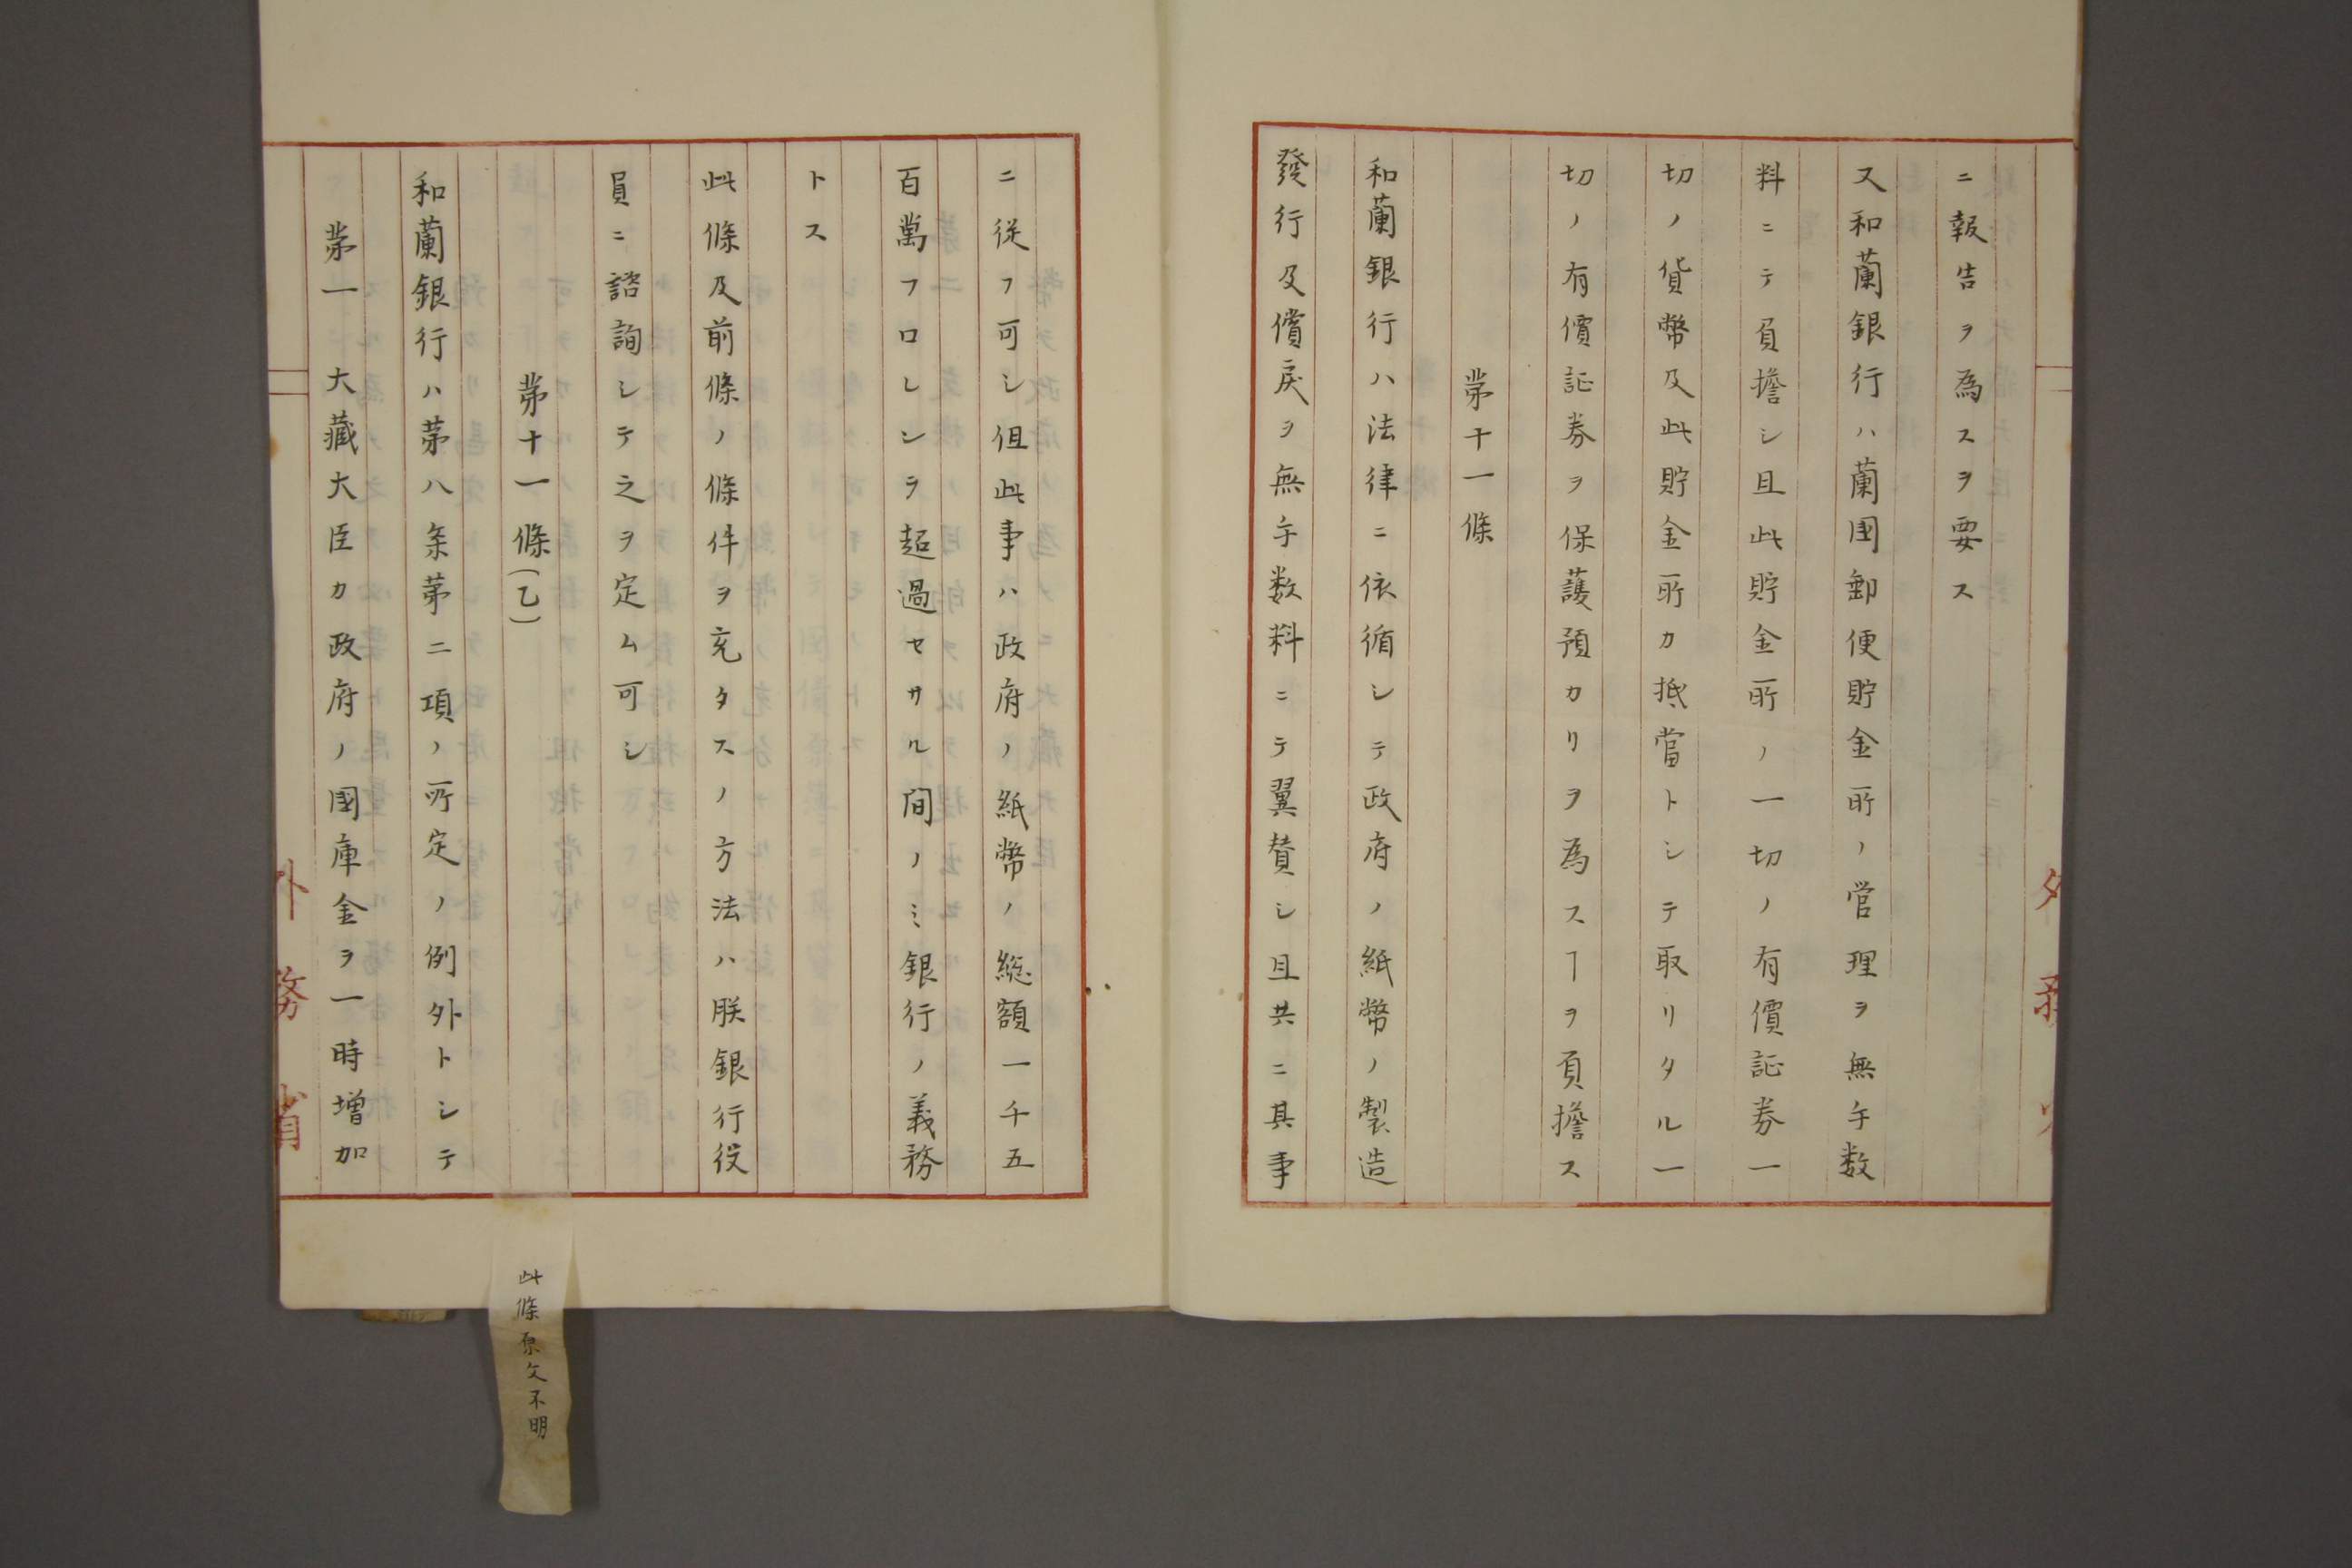 ニ報告ヲ為スヲ要ス
又和蘭銀行ハ蘭国郵便貯金所ノ管理ヲ無手数
料ニテ負擔シ且此貯金所ノ一切ノ有價証券一
切ノ貨幣及此貯金所カ抵當トシテ取リタル一
切ノ有價証券ヲ保護預カリヲ為スヿヲ負擔ス
第十一條
和蘭銀行ハ法律ニ依循シテ政府ノ紙幣ノ製造
發行及償戻ヲ無手数料ニテ翼賛シ且共ニ其事
ニ従フ可シ但此事ハ政府ノ紙幣ノ総額一千五
百萬フロレンヲ超過セサル間ノミ銀行ノ義務
トス
此條及前條ノ條件ヲ充タスノ方法ハ朕銀行役
員ニ諮詢シテ之ヲ定ム可シ
第十一條(乙)
和蘭銀行ハ第八条第二項ノ所定ノ例外トシテ
第一 大藏大臣カ政府ノ國庫金ヲ一時増加
此條原文不明
外務省